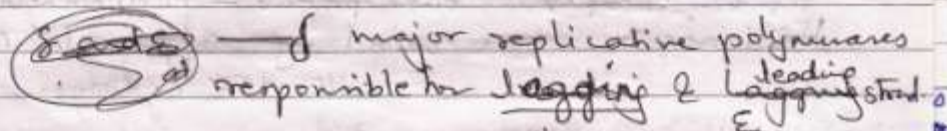 — δ major replicative polymerases
responsible for lagging & leading strand.
ε